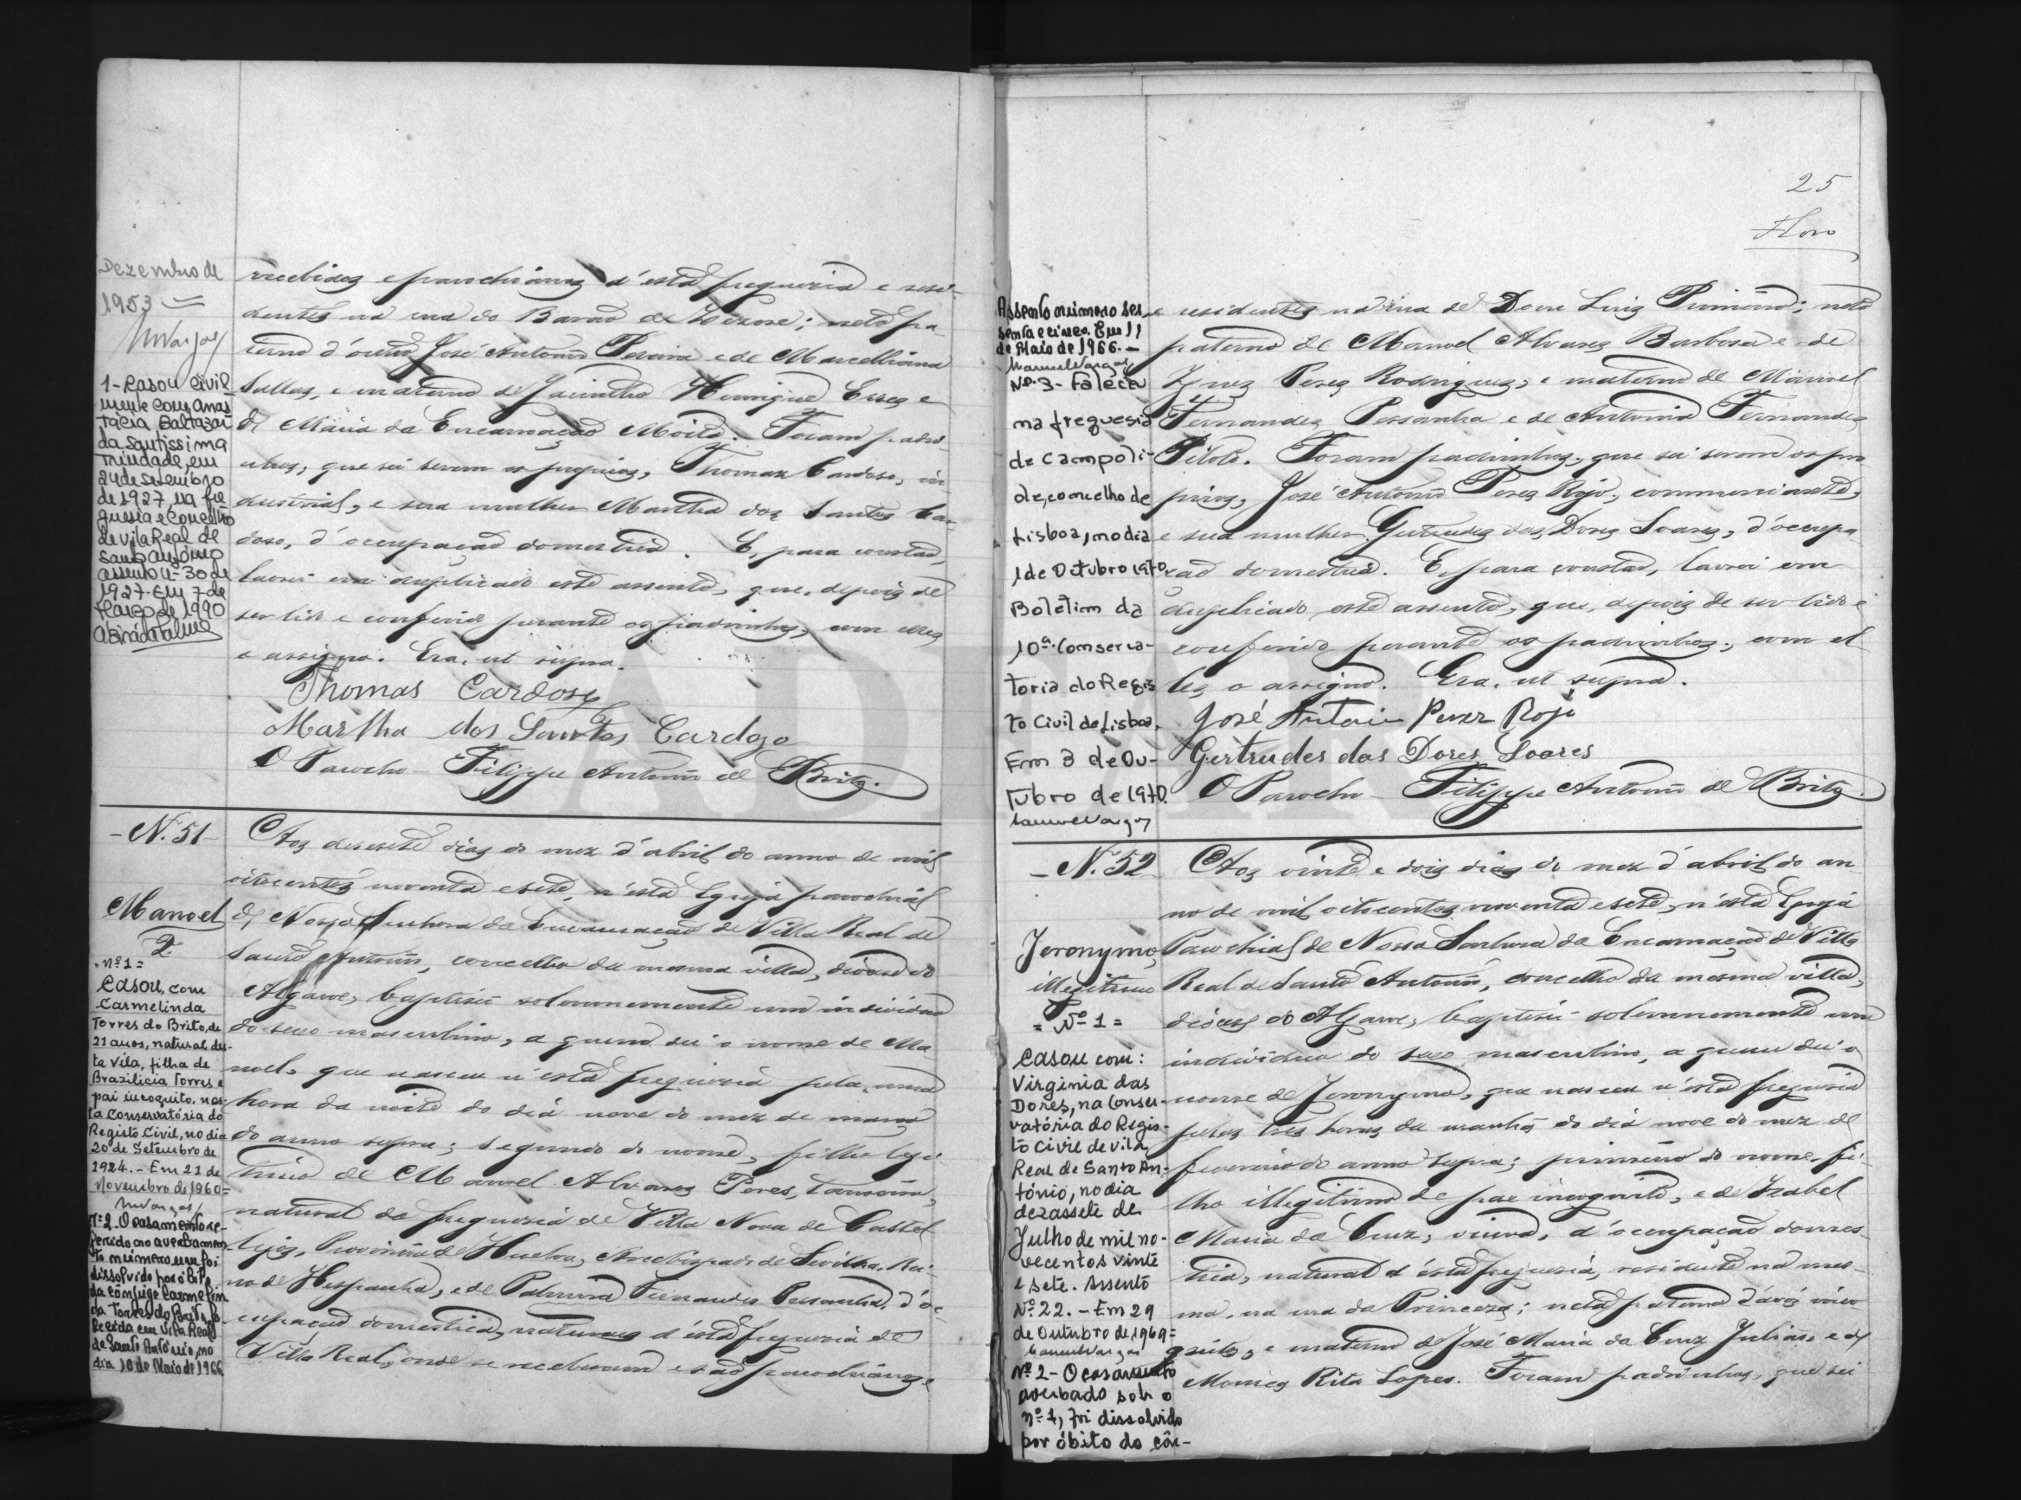 Dezembro de
1953
MVargas
1-Casou civil
mente com Anas
tácia Baltazar
da Santissima
Trindade, em
24 de setembro
de 1927, na fre
guesia e concelho
de Vila Real de
Santo António
assento nº 30 de
1927. Em 7 de
Março de 1990
recebidos e parochianos d'esta freguezia e resi-
dentes na rua do Barão de ; neto pa-
terno d'outro José Antonio Pereira e de Marcellina
Salles, e materno de Jacintho Henrique Esses e
de Maria da Encarnação Moita. Foram padri-
nhos, que sei serem os proprios, Thomaz Cardoso, in-
dustrial, e sua mulher Martha dos Santos Car-
doso, d'occupação domestica. E, para constar,
lavrei em duplicado este assento, que, depois de
ser lido e conferido perante os padrinhos, com elles
o assigno. Era, ut supra.
Thomas Cardoso
Martha dos Santos Cardozo
O Parocho Filippe Antonio de Brito.
- N. 51 -
Manoel
2º
nº 1 =
Casou, com
Carmelinda
Torres do Brito, de
21 anos, natural des-
ta Vila, filha de
Brazilicia Torres e
pai incognito, nes-
ta Conservatória do
Registo Civil, no dia
20 de Setembro de
1924. - Em 21 de
Novembro de 1960=
MVargas
Nº 2-O casamento re-
ferido no averbamen-
to número um foi
dissolvido por óbito
da cônjuge Carmelin-
da Torres do Brito, fa-
lecida em Vila Real
de Santo António, no
dia 10 de Maio de 1966
Aos desesete dias do mez d'abril do anno de mil
oitocentos noventa e sete, n'esta Egreja parochial
de Nossa Senhora da Encarnação de Villa Real de
Santo Antonio, concelho da mesma villa, diocese do
Algarve, baptisei solemnemente um individuo
do sexo masculino, a quem dei o nome de Ma-
noel, que nasceu n'esta freguezia pela uma
hora da noite do dia nove do mez de março
do anno supra; segundo do nome, filho legi-
timo de Manoel Alvares Peres, tanoeiro,
natural da freguezia de Villa Nova de Castel-
lejos, Provincia de Huelva, Arcebispado de Sevilha, Rei-
no de Hespanha, e de Palmira Fernandes Pessanha, d'oc-
cupação domestica, natural d'esta freguezia de
Villa Real, onde se receberam e são parochianos
25
Assento número ses-
senta e cinco. Em 11
de Maio de 1966.-
Manuel Vargas
Nº. 3- Faleceu
na freguesia
de Campoli-
de, concelho de
Lisboa, no dia
1 de Outubro 1970
Boletim da
10ª. Conserva-
toria do Regis
to Civil de Lisboa.
Em 3 de Ou-
tubro de 1970.
Manuel Vargas
e residentes na rua de Dom Luiz Primeiro; neto
paterno de Manoel Alvares Barbosa e de
Ignez Peres Rodrigues, e materno de Manoel
Fernandes Pessanha e de Antonia Fernandes
Piloto. Foram padrinhos, que sei serem os pro-
prios, José Antonio Peres Rojo, commerciante,
e sua mulher Gertrudes das Dores Soares, d'occupa-
ção domestica. E, para constar, lavrei em
duplicado este assento, que, depois de ser lido e
conferido perante os padrinhos, com el-
les o assigno. Era, ut supra.
José Antonio Perez Rojo
Gertrudes das Dores Soares
O Parocho Filippe Antonio de Brito.
- N. 52
Jeronymo,
illegitimo
1º
= Nº 1 =
Casou com:
Virginia das
Dores, na Conser-
vatória do Regis-
to Civil de Vila
Real de Santo An-
tónio, no dia
dezassete de
Julho de mil no-
vecentos vinte
e sete. Assento
Nº 22. - Em 29
de Outubro de 1969=
Manuel Vargas
Nº 2- O casamento
averbado sob o
nº 1, foi dissolvido
por óbito do côn-
Aos vinte e dois dias do mez d'abril do an-
no de mil oitocentos noventa e sete, n'esta Egreja
Parochial de Nossa Senhora da Encarnação de Villa
Real de Santo Antonio, concelho da mesma villa,
diocese do Algarve, baptisei solemnemente um
individuo do sexo masculino, a quem dei o
nome de Jeronymo, que nasceu n'esta freguezia
pelas tres horas da manhã do dia nove do mez de
fevereiro do anno supra; primeiro do nome, fi-
lho illegitimo de pae incognito, e de Izabel
Maria da Cruz, viuva, d'occupação domes-
tica, natural d'esta freguezia, residente na mes-
ma, na rua da Princeza; neto paterno d'avós inco-
gnitos, e materno de José Maria da Cruz Julião, e de
Monica Rita Lopes. Foram padrinhos, que sei
ADFAR